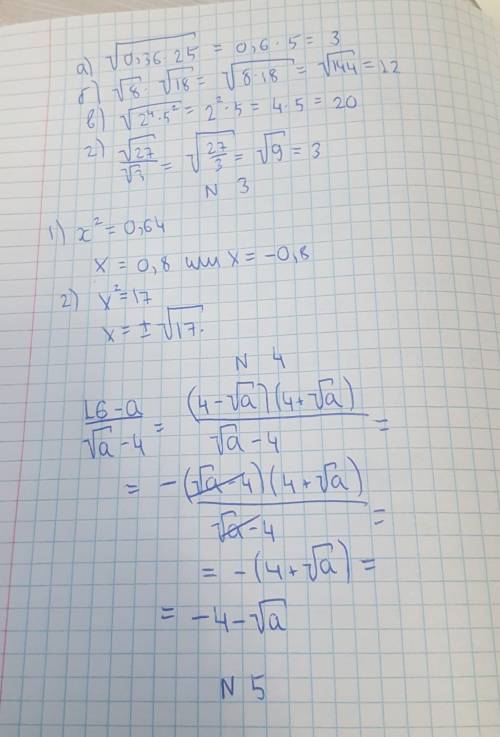 а) √0,36·25 = 0,6·5 = 3
б) √8·√18 = √8·18 = √144 = 12
в) √2⁴·5² = 2²·5 = 4·5 = 20
г) √27/√3 = √27/3 = √9 = 3
N 3
1) x² = 0,64
x = 0,8 или x = -0,8
2) x² = 17
x = ±√17.
N 4
16-a/√a-4 = (4-√a)(4+√a)/√a-4 =
= -(√a-4)(4+√a)/√a-4 =
= -(4+√a) =
= -4-√a
N 5